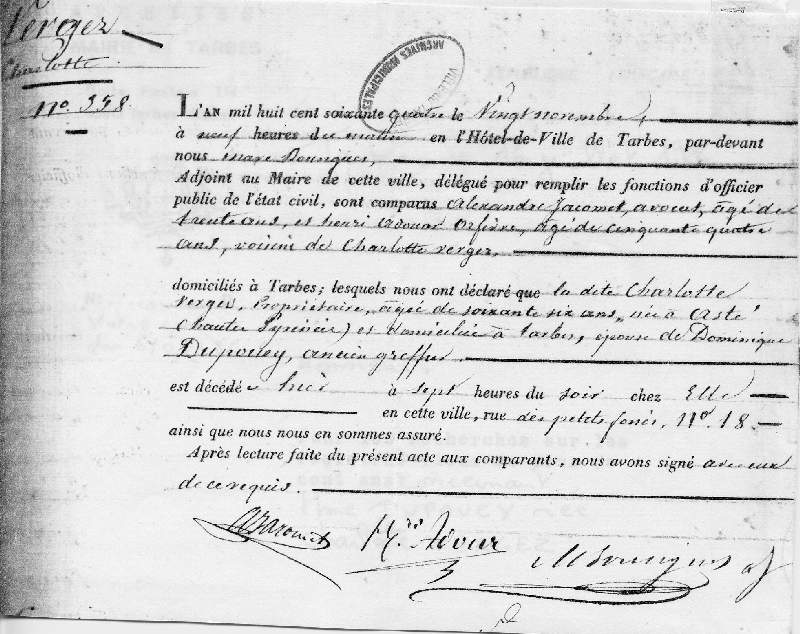 Verger
Charlotte
N.º 358
ARCHIVES MUNICIPALES
L'AN mil huit cent soixante quatre le Vingt novembre,
à neuf heures du matin en l'Hôtel-de-Ville de Tarbes, par-devant
nous marc Dourigues,
Adjoint au Maire de cette ville, délégué pour remplir les fonctions d'officier
public de l'état civil, sont comparus Alexandre Jacomet, avocat, âgé de
trente ans, et henri adour orfèvre, âgé de cinquante quatre
ans, voisins de Charlotte verger,
domiciliés à Tarbes; lesquels nous ont déclaré que la dite Charlotte
verger, Propriétaire, agée de soixante six ans, née à Asté
(hautes Pyrénées) et domiciliée à tarbes, épouse de Dominique
Dupouey, ancien greffier
est décédée hier à sept heures du soir chez Elle
en cette ville, rue des petits fossés, N.º 18.
ainsi que nous nous en sommes assuré.
Après lecture faite du présent acte aux comparants, nous avons signé avec eux
de ce requis.
AJacomet
H.ri Adour